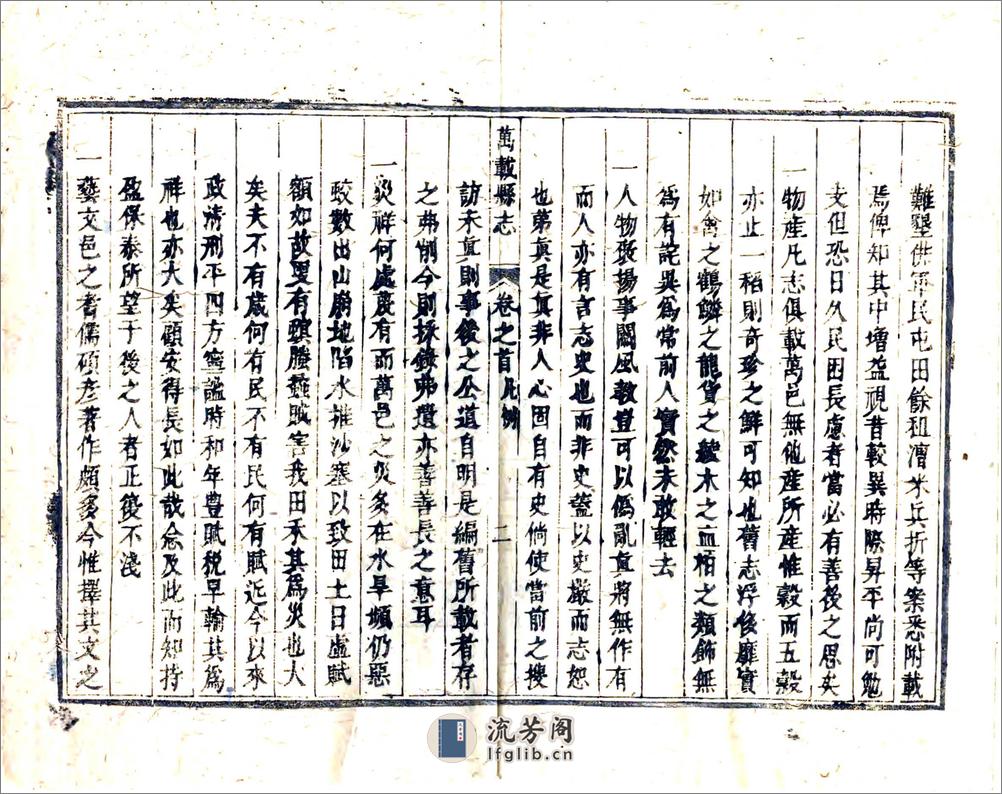 難墾供軍民屯田餘租漕米兵折等案悉附載
焉俾知其中增益視昔較異時際昇平尚可勉
支但恐日久民困長慮者當必有善後之思矣
一物產凡志俱載萬邑無他產所產惟穀而五穀
亦止一稻則奇珍之鮮可知也舊志浮後靡實
如禽之鶴鱗之龍貨之綾木之血柏之類飾無
為有詫異為常前人實然未敢輕去
一人物發揚事關風教豈可以偽亂真將無作有
而人亦有言志史也而非史蓋以史嚴而志恕
也第真是真非人心固自有史倘使當前之搜
萬載縣志
卷之首凡例
二
訪未真則事後之公道自明是編舊所載者存
之弗削今則採錄弗遺亦善善長之意耳
一災祥何處蔑有而萬邑之災多在水旱頻仍惡
蛟數出山崩地陷水推沙塞以致田土日虛賦
額如故更有螟螣蟊賊害我田禾其為災也大
矣夫不有歲何有民不有民何有賦近今以來
政清刑平四方寧謐時和年豐賦稅早輸其為
祥也亦大矣顧安得長如此哉念及此而知持
盈保泰所望于後之人者正復不淺
一藝文邑之耆儒碩彥著作頗多今惟擇其文之
流芳阁
lfglib.cn